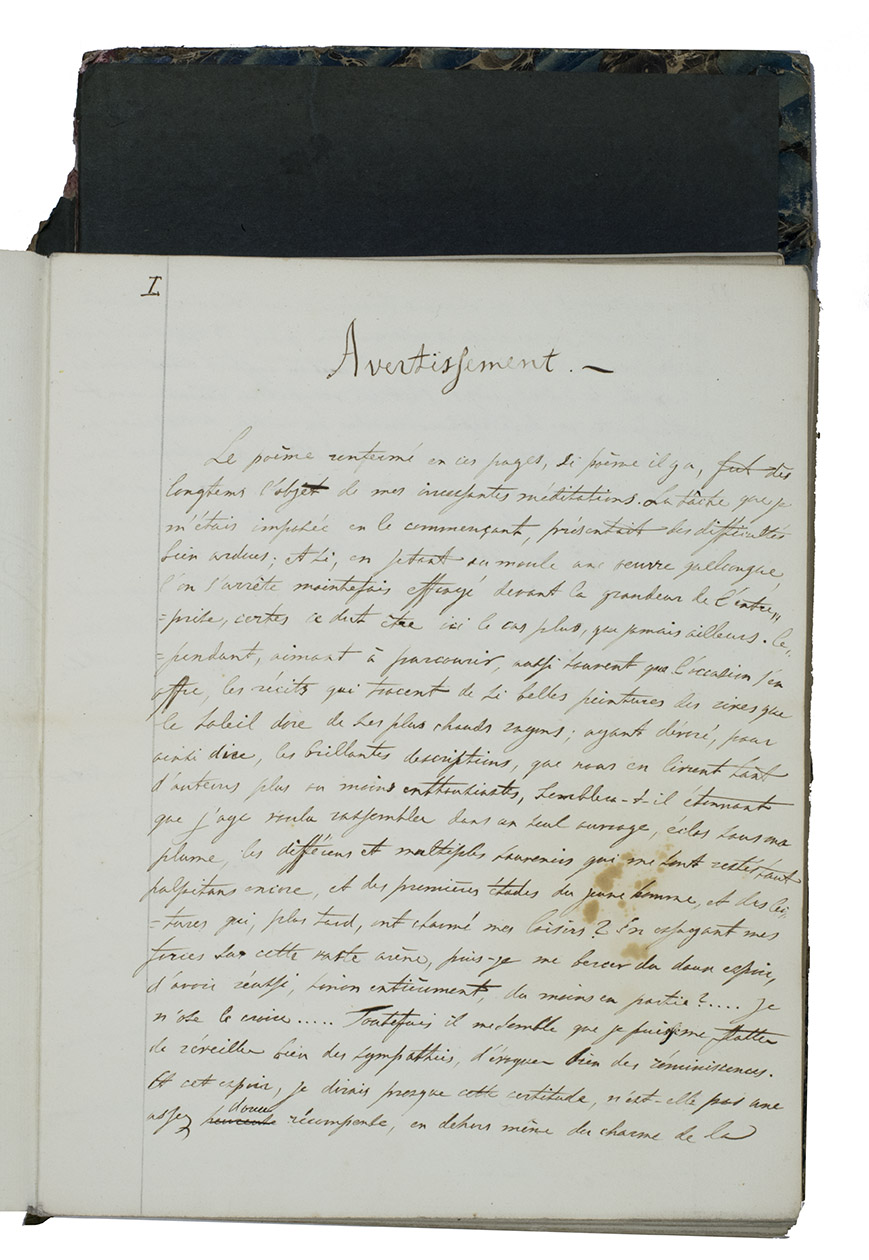 I
Avertissement. —
Le poême renfermé en ces pages, si poême il y a, fut dès
longtems l'objet de mes incessantes méditations. La tâche que je
m'étais imposée en le commençant, présentait des difficultés
bien ardues; et si, en jetant au moule une oeuvre quelconque,
l'on s'arrête maintefois effrayé devant la grandeur de l'entre„
=prise, certes ce dut être ici le cas plus, que jamais ailleurs. Ce„
=pendant, aimant à parcourir, aussi souvent que l'occasion s'en
offre, les récits qui tracent de si belles peintures des rives que
le soleil dore de ses plus chauds rayons; ayant dévoré, pour
ainsi dire, les brillantes descriptions, que nous en livrent tant
d'auteurs plus ou moins enthousiastes, semblera-t-il étonnant
que j'aye voulu rassembler dans un seul ouvrage, éclos sous ma
plume, les différens et multiples souvenirs qui me sont restés tout
palpitans encore, et des premières études du jeune homme, et des lec„
=tures qui, plus tard, ont charmé mes loisirs? En essayant mes
forces sur cette vaste arène, puis-je me bercer du doux espoir,
d'avoir réussi, sinon entièrement, du moins en partie?.... Je
n'ose le croire..... Toutefois il me semble que je puis me flatter
de réveiller bien des sympathies, d'évoquer bien des réminiscences.
Et cet espoir, je dirais presque cette certitude, n'est-elle pas une
assez douce récompense, en dehors même du charme de la